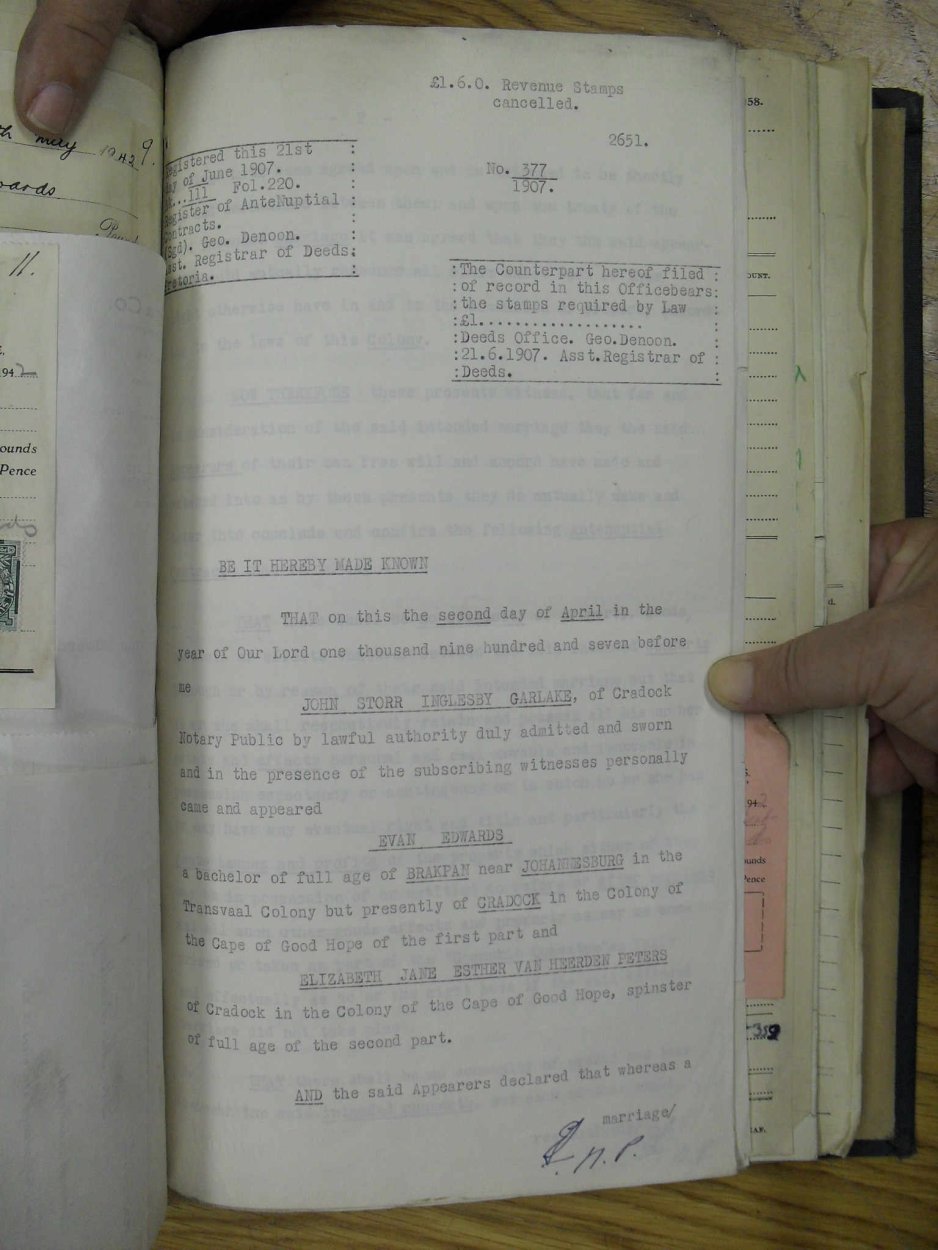 £1.6.0. Revenue Stamps
cancelled.
2651.
No. 377
1907.
Registered this 21st :
day of June 1907. :
III Fol.220. :
Register of AnteNuptial :
Contracts. :
(Sgd). Geo. Denoon. :
Asst. Registrar of Deeds:
Pretoria. :
:The Counterpart hereof filed :
:of record in this Officebears:
:the stamps required by Law :
:£1................... :
:Deeds Office. Geo.Denoon. :
:21.6.1907. Asst.Registrar of :
:Deeds. :
BE IT HEREBY MADE KNOWN
THAT on this the second day of April in the
year of Our Lord one thousand nine hundred and seven before
me
JOHN STORR INGLESBY GARLAKE, of Cradock
Notary Public by lawful authority duly admitted and sworn
and in the presence of the subscribing witnesses personally
came and appeared
EVAN EDWARDS
a bachelor of full age of BRAKPAN near JOHANNESBURG in the
Transvaal Colony but presently of CRADOCK in the Colony of
the Cape of Good Hope of the first part and
ELIZABETH JANE ESTHER VAN HEERDEN PETERS
of Cradock in the Colony of the Cape of Good Hope, spinster
of full age of the second part.
AND the said Appearers declared that whereas a
marriage/
N.P.
may 1942
11.
ounds
Pence
58.
OUNT.
d.
ounds
Pence